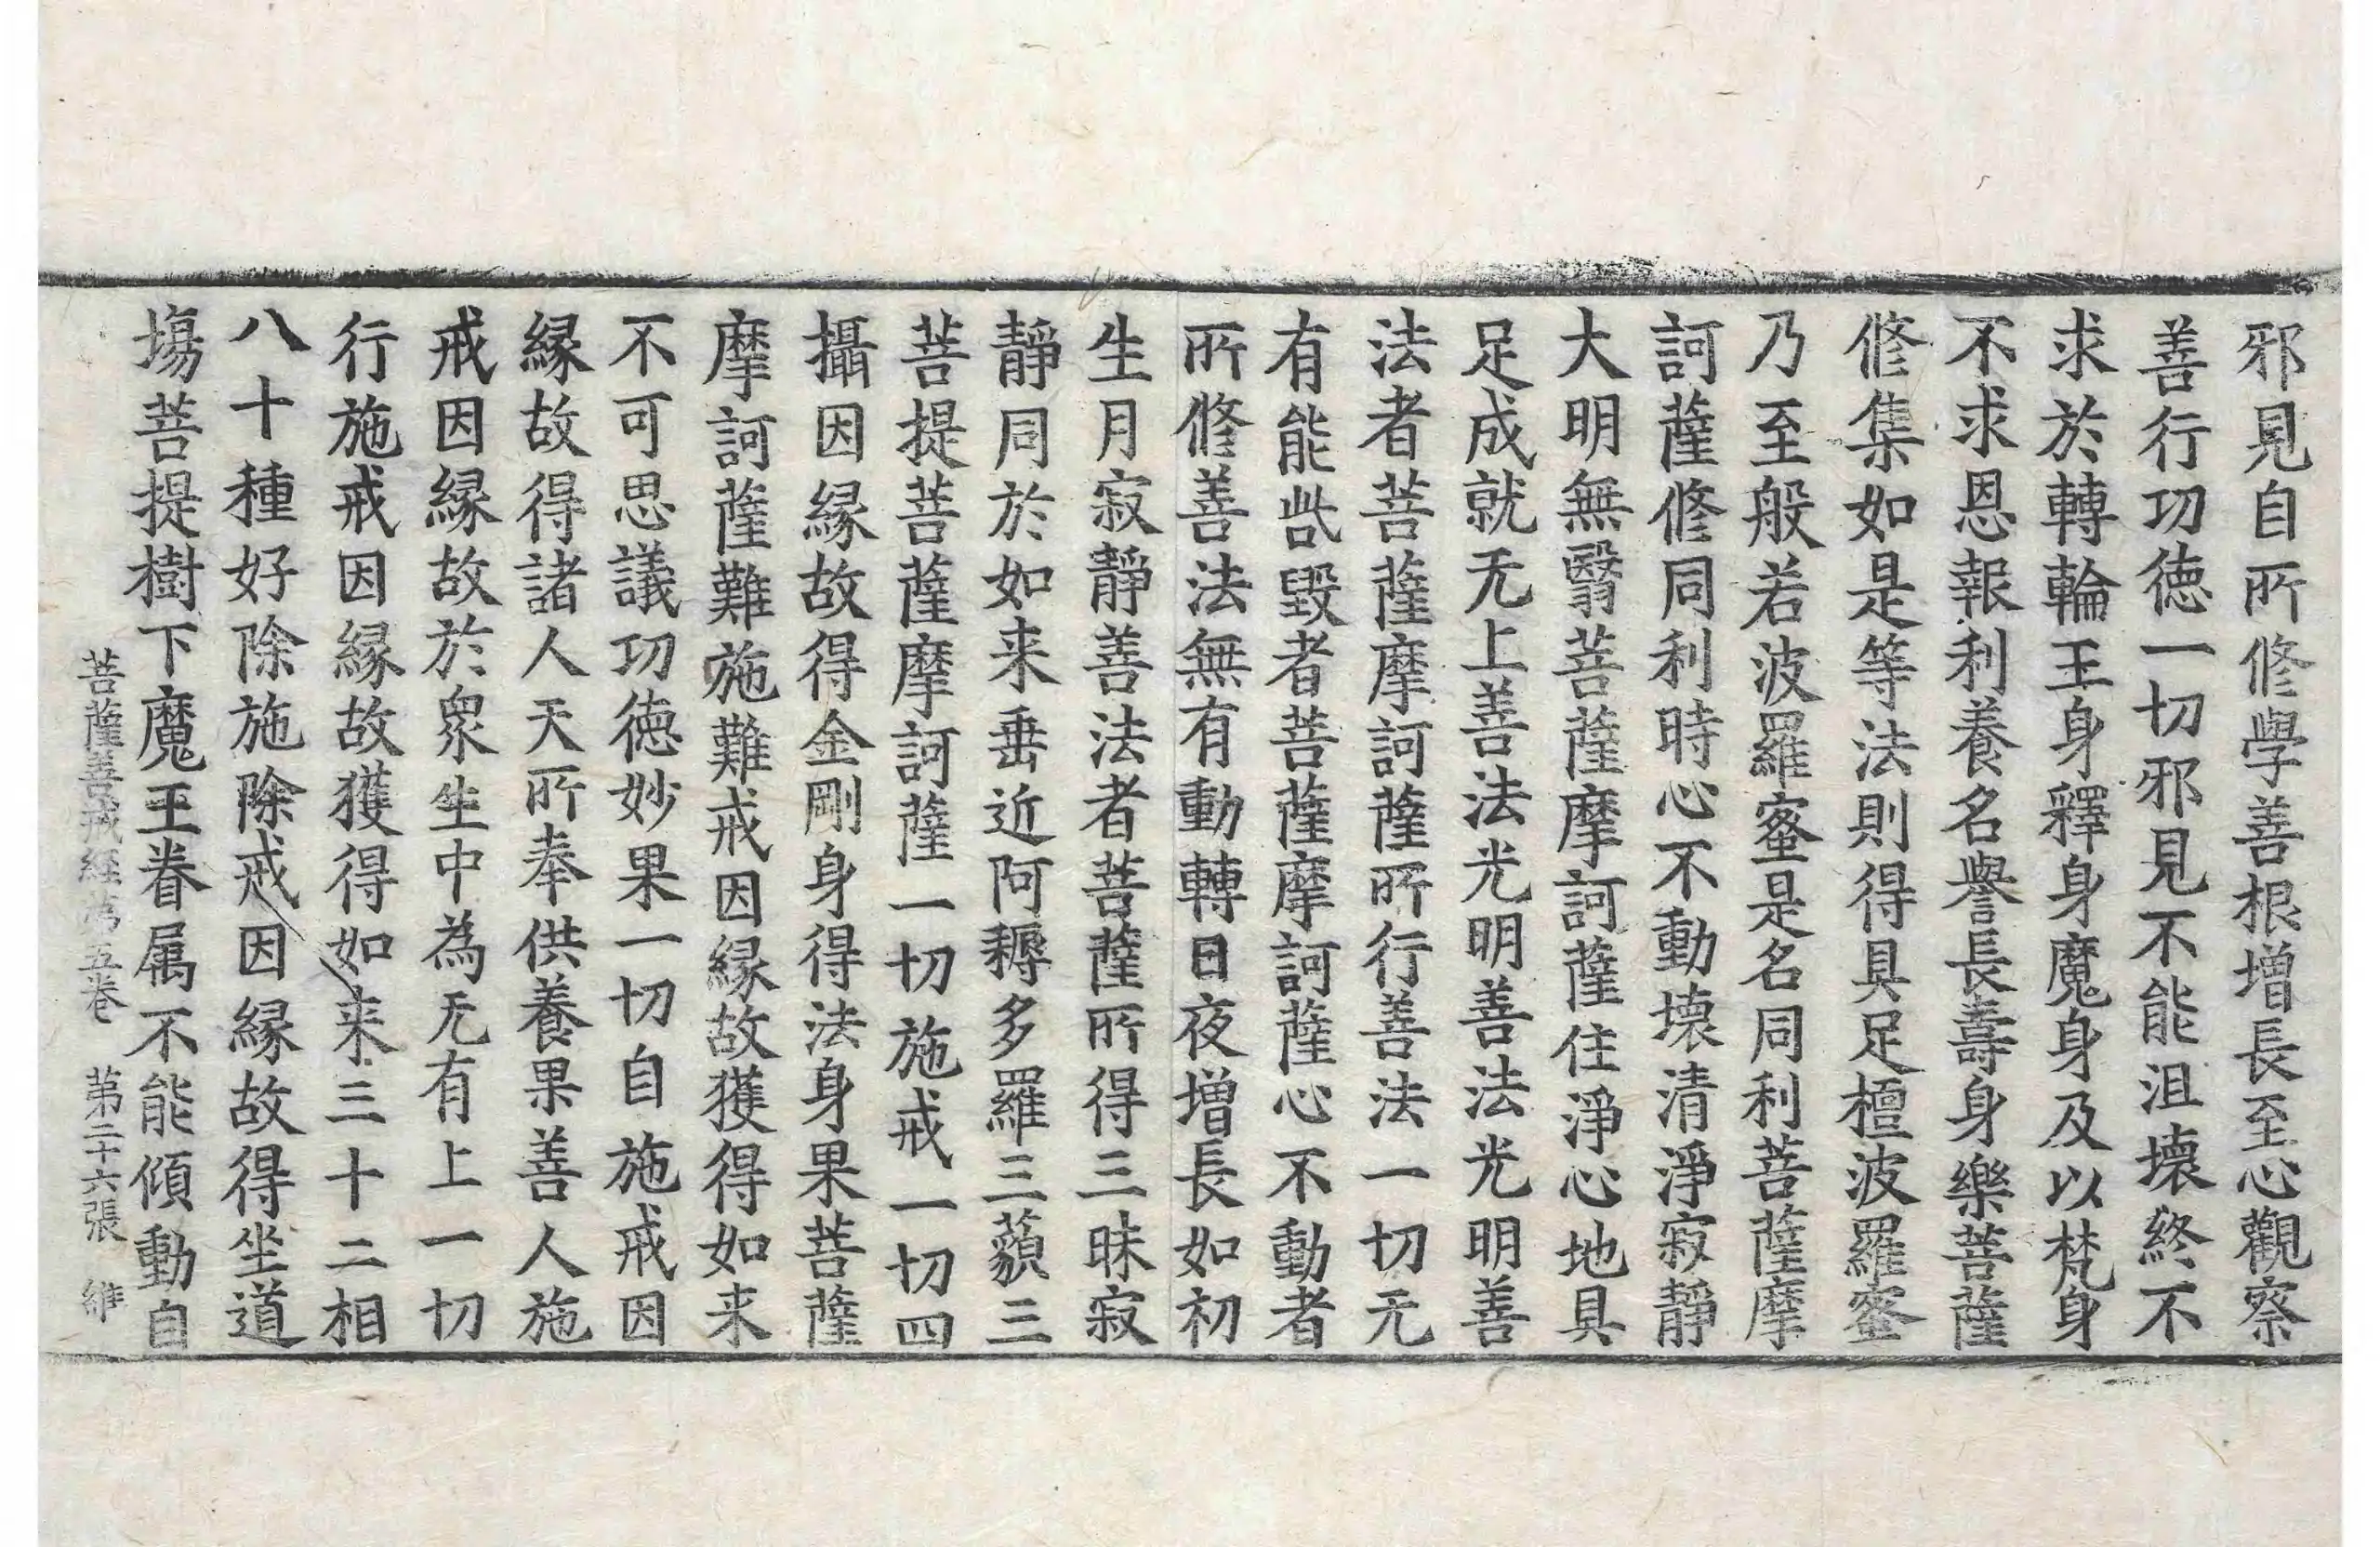 邪見自所修學善根增長至心觀察
善行功德一切邪見不能沮壞終不
求於轉輪王身釋身魔身及以梵身
不求恩報利養名譽長壽身樂菩薩
修集如是等法則得具足檀波羅蜜
乃至般若波羅蜜是名同利菩薩摩
訶薩修同利時心不動壞清淨寂靜
大明無翳菩薩摩訶薩住淨心地具
足成就无上善法光明善法光明善
法者菩薩摩訶薩所行善法一切无
有能呰毀者菩薩摩訶薩心不動者
所修善法無有動轉日夜增長如初
生月寂靜善法者菩薩所得三昧寂
靜同於如来垂近阿耨多羅三藐三
菩提菩薩摩訶薩一切施戒一切四
攝因緣故得金剛身得法身果菩薩
摩訶薩難施難戒因緣故獲得如来
不可思議功德妙果一切自施戒因
緣故得諸人天所奉供養果善人施
戒因緣故於眾生中為无有上一切
行施戒因緣故獲得如来三十二相
八十種好除施除戒因緣故得坐道
場菩提樹下魔王眷属不能傾動自
菩薩善戒经第五卷 第二十六張 維